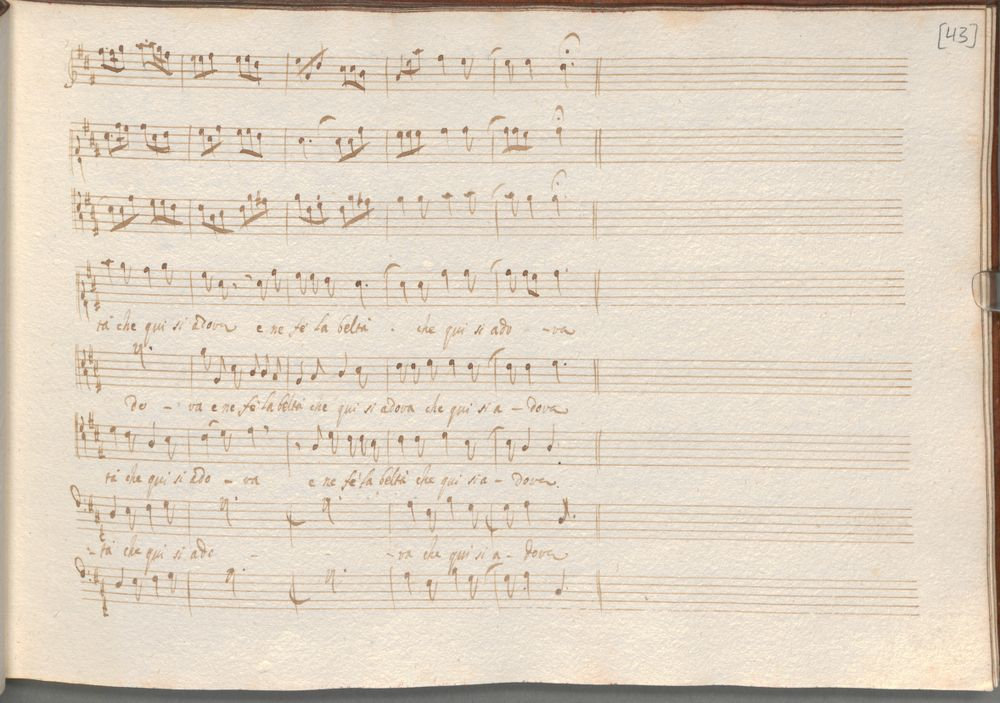 [43]
tà che qui si adora e ne fé la beltà . che qui si ado - - ra
do - ra e ne fé la beltà che qui si adora che qui si a - dora
tà che qui si ado - ra e ne fé la beltà che qui si a - dora.
- tà che qui si ado - - - ra che qui si a - dora